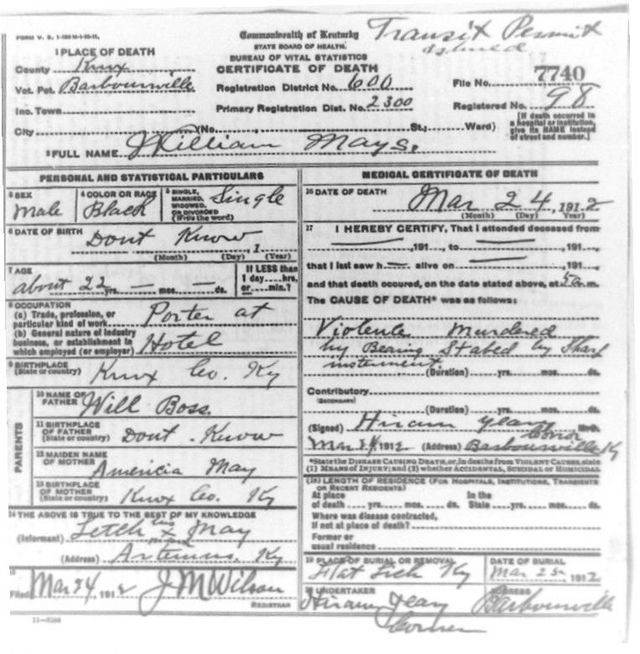 FORM V. S.
Commonwealth of Kentucky
Transit Permit
STATE BOARD OF HEALTH.
BUREAU OF VITAL STATISTICS
CERTIFICATE OF DEATH
1 PLACE OF DEATH
County Knox
Vot. Pct. Barbourville
Inc. Town
City (No. St.; Ward)
Registration District No. 600
Primary Registration Dist. No. 2300
File No. 7740
Registered No. 98
[If death occurred in
a hospital or institution,
give its NAME instead
of street and number.]
2 FULL NAME William Mays.
PERSONAL AND STATISTICAL PARTICULARS
3 SEX
Male
4 COLOR OR RACE
Black
5 SINGLE,
MARRIED,
WIDOWED,
OR DIVORCED
(Write the word)
Single
6 DATE OF BIRTH
Dont Know, 1
(Month) (Day) (Year)
7 AGE
about 22 yrs. — mos. — ds.
If LESS than
1 day....hrs.
or....min.?
8 OCCUPATION
(a) Trade, profession, or
particular kind of work Porter at
(b) General nature of industry
business, or establishment in
which employed (or employer) Hotel
9 BIRTHPLACE
(State or country) Knox Co. Ky
PARENTS
10 NAME OF
FATHER Will Boss.
11 BIRTHPLACE
OF FATHER
(State or country) Dont Know
12 MAIDEN NAME
OF MOTHER Americia May
13 BIRTHPLACE
OF MOTHER
(State or country) Knox Co. Ky
14 THE ABOVE IS TRUE TO THE BEST OF MY KNOWLEDGE
(Informant) May
(Address) Artemus, Ky
15
Filed Mar 24, 1912 J M Wilson
REGISTRAR
MEDICAL CERTIFICATE OF DEATH
16 DATE OF DEATH
Mar 24, 1912
(Month) (Day) (Year)
17 I HEREBY CERTIFY, That I attended deceased from
, 191...., to , 191....,
that I last saw h.... alive on , 191....,
and that death occured, on the date stated above, at m.
The CAUSE OF DEATH* was as follows:
Violente Murdered
by Bearing Stabed by Sharp
instrument.
(Duration) yrs. mos. ds.
Contributory
(SECONDARY)
(Duration) yrs. mos. ds.
(Signed) Hiram
Mar 24, 1912 (Address) Barbourville Ky
*State the DISEASE CAUSING DEATH, or, in deaths from VIOLENT CAUSES, state
(1) MEANS OF INJURY; and (2) whether ACCIDENTAL, SUICIDAL or HOMICIDAL
18 LENGTH OF RESIDENCE (FOR HOSPITALS, INSTITUTIONS, TRANSIENTS
OR RECENT RESIDENTS)
At place
of death yrs. mos. ds.
In the
State yrs. mos. ds.
Where was disease contracted,
if not at place of death?
Former or
usual residence
19 PLACE OF BURIAL OR REMOVAL
Flat Lick Ky
DATE OF BURIAL
Mar 25, 1912
20 UNDERTAKER
Hiram
Corner
ADDRESS
Barbourville